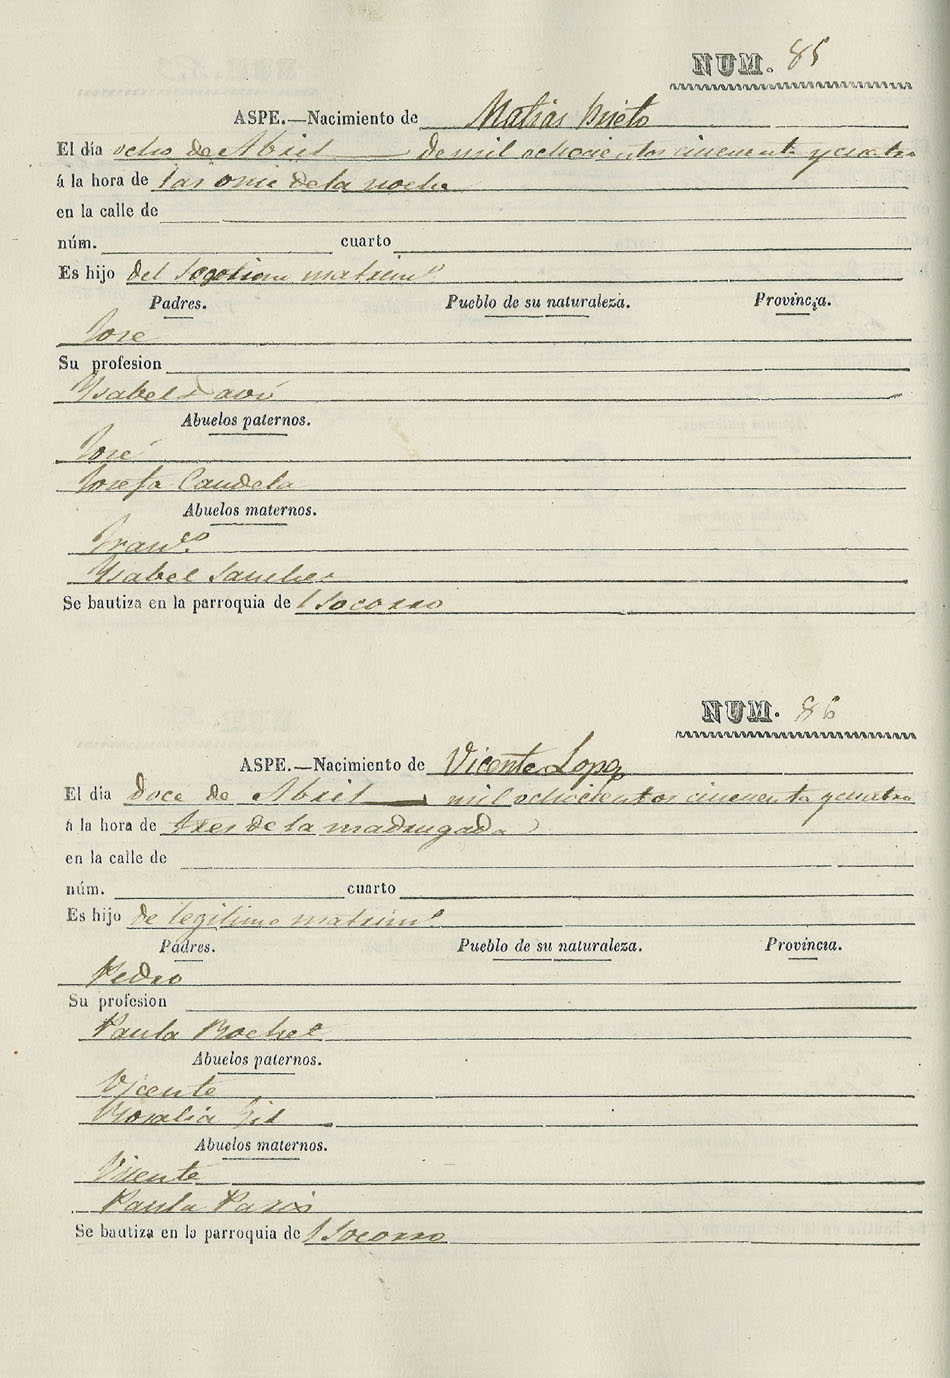 NUM. 85
ASPE.—Nacimiento de Matias Prieto
El día ocho de Abril de mil ochocientos cincuenta y cuatro
á la hora de las once de la noche
en la calle de
núm. cuarto
Es hijo del matrimo
Padres. Pueblo de su naturaleza. Provincia.
Jose
Su profesion
Ysabel
Abuelos paternos.
José
Josefa Candela
Abuelos maternos.
Franco
Ysabel Sanchez
Se bautiza en la parroquia de Socorro
NUM. 86
ASPE.—Nacimiento de Vicente Lopez
El día doce de Abril mil ochocientos cincuenta y cuatro
á la hora de tres de la madrugada
en la calle de
núm. cuarto
Es hijo de legitimo matrimo
Padres. Pueblo de su naturaleza. Provincia.
Pedro
Su profesion
Paula
Abuelos paternos.
Vicente
Rosalia Gil
Abuelos maternos.
Vicente
Paula
Se bautiza en la parroquia de Socorro